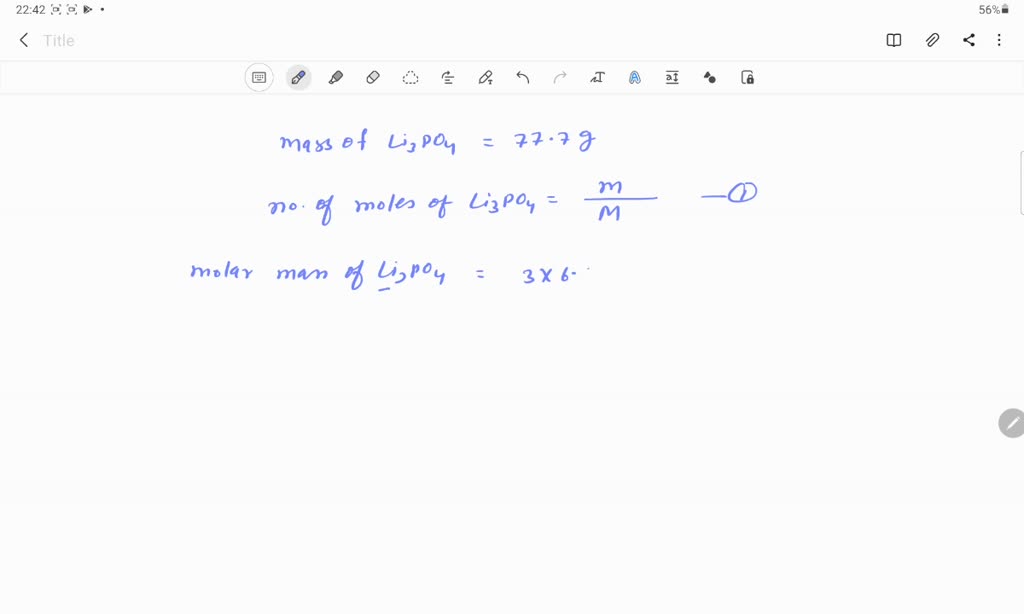 22:42 56%
Title
mass of Li3PO4 = 77.7 g
no. of moles of Li3PO4 = m/M — ①
molar mass of Li3PO4 = 3 X 6.